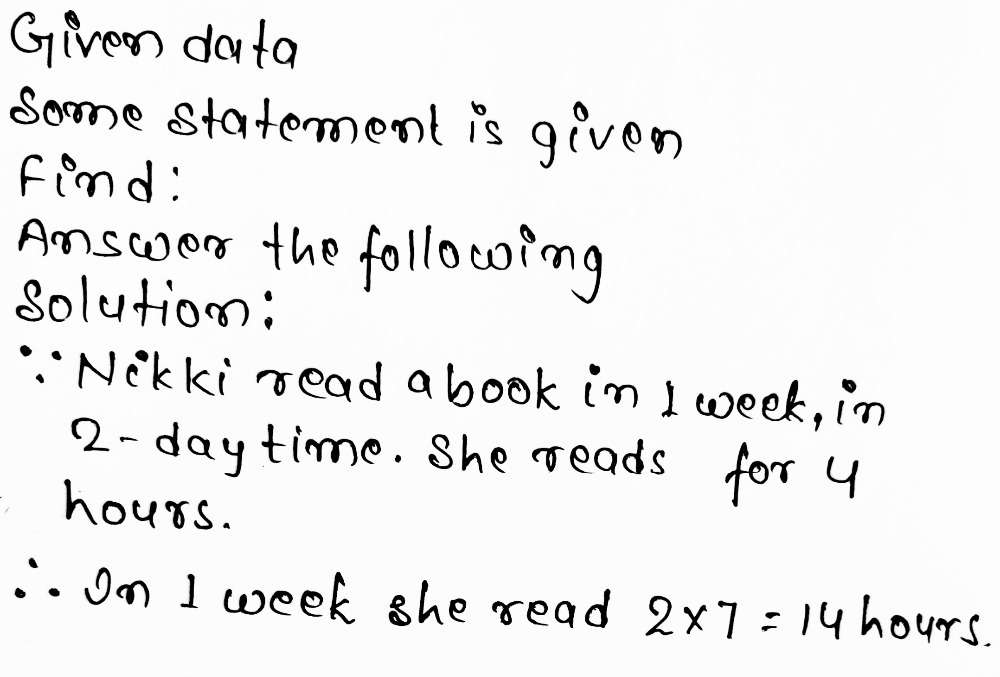 Given data
Some statement is given
Find:
Answer the following
Solution:
∵ Nikki read a book in 1 week, in
2-day time. She reads for 4
hours.
∴ In 1 week she read 2x7 = 14 hours.